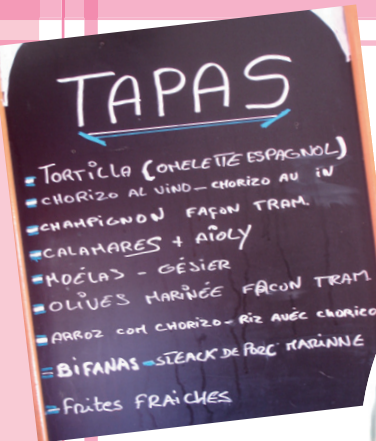 TAPAS
- TORTILLA (OMELETTE ESPAGNOL)
- CHORIZO AL VINO - CHORIZO AU iN
- CHAMPIGNON FAÇON TRAM.
- CALAMARES + AÏOLY
- MOÉLAS - GÉSIER
- OLIVES MARINÉE FAÇON TRAM
- ARROZ COM CHORIZO - RIZ AVÉC CHORICO
- BIFANAS - STEACK DE PORC MARINNE
- Frites FRAICHES